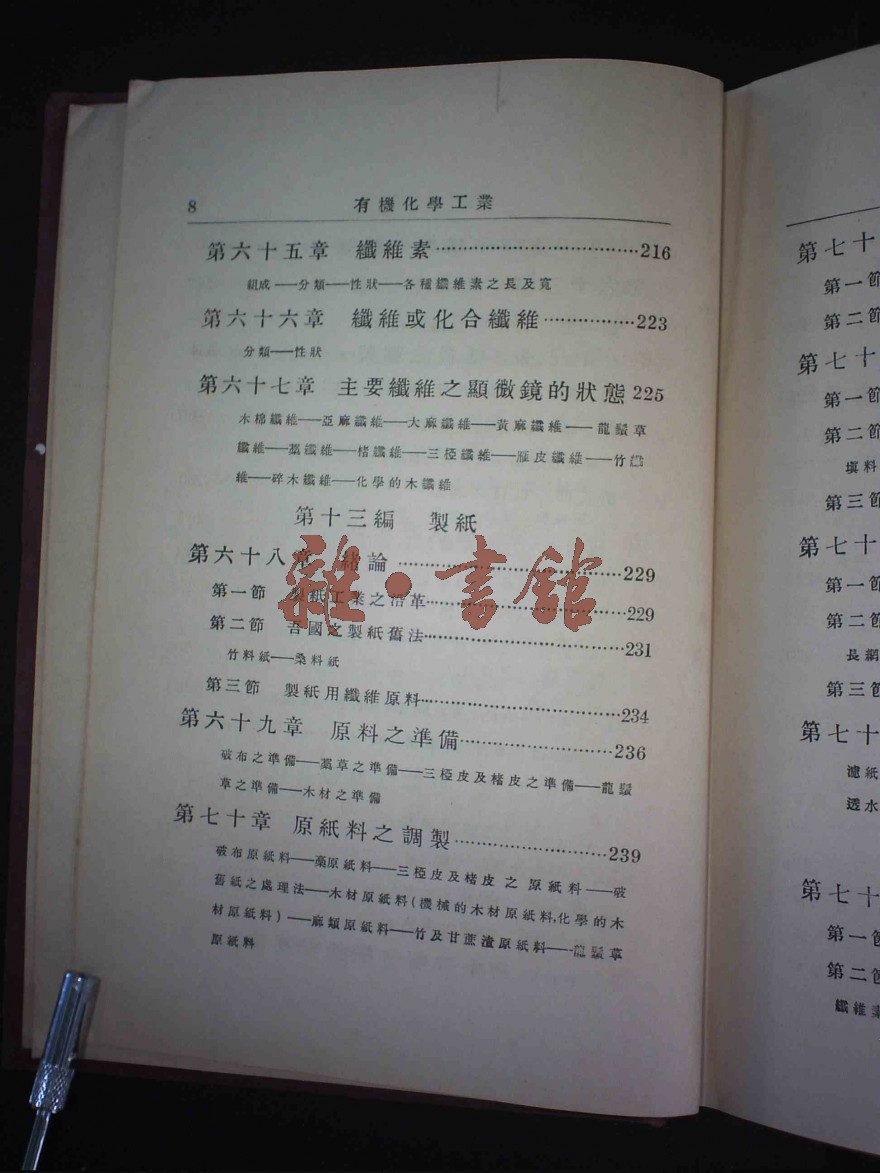 8 有機化學工業
第六十五章 纖維素……………………………216
組成——分類——性狀——各種纖維素之長及寬
第六十六章 纖維或化合纖維……………223
分類——性狀
第六十七章 主要纖維之顯微鏡的狀態 225
木棉纖維——亞麻纖維——大麻纖維——黃麻纖維——龍鬚草
纖維——藁纖維——楮纖維——三椏纖維——雁皮纖維——竹纖
維——碎木纖維——化學的木纖維
第十三編 製紙
第六十八章 緒論……………………………229
第一節 製紙工業之沿革……………………………229
第二節 吾國之製紙舊法……………………………231
竹料紙——桑料紙
第三節 製紙用纖維原料……………………………234
第六十九章 原料之準備……………………236
破布之準備——藁草之準備——三椏皮及楮皮之準備——龍鬚
草之準備——木材之準備
第七十章 原紙料之調製……………………239
破布原紙料——藁原紙料——三椏皮及楮皮之原紙料——破
舊紙之處理法——木材原紙料(機械的木材原紙料,化學的木
材原紙料)——麻類原紙料——竹及甘蔗渣原紙料——龍鬚草
原紙料
雜·書館
第七十
第一節
第二節
第七十
第一節
第二節
填料
第三節
第七十
第一節
第二節
長網
第三節
第七十
濾紙
透水
第七十
第一節
第二節
纖維素